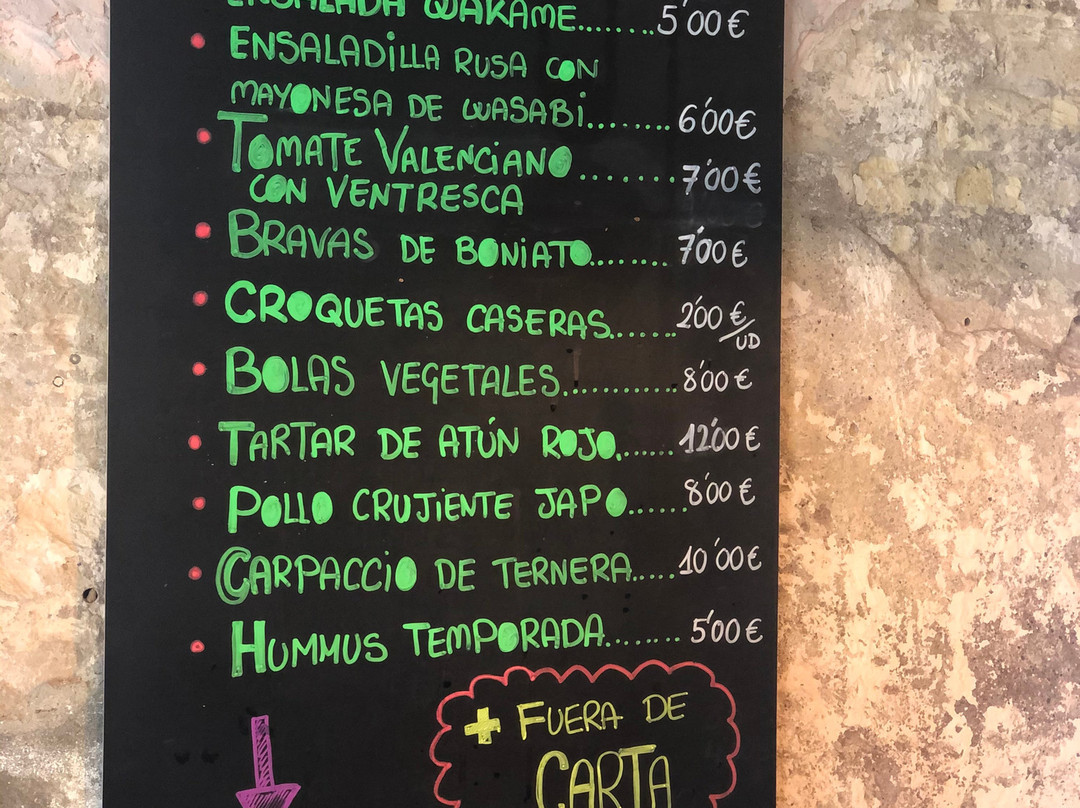 ENSALADA WAKAME........5'00€
ENSALADILLA RUSA CON
MAYONESA DE WASABI........6'00€
TOMATE VALENCIANO.......7'00€
CON VENTRESCA
BRAVAS DE BONIATO........7'00€
CROQUETAS CASERAS.......2'00€/UD
BOLAS VEGETALES...........8'00€
TARTAR DE ATÚN ROJO.......12'00€
POLLO CRUJIENTE JAPO......8'00€
CARPACCIO DE TERNERA.....10'00€
HUMMUS TEMPORADA.......5'00€
+ FUERA DE
CARTA